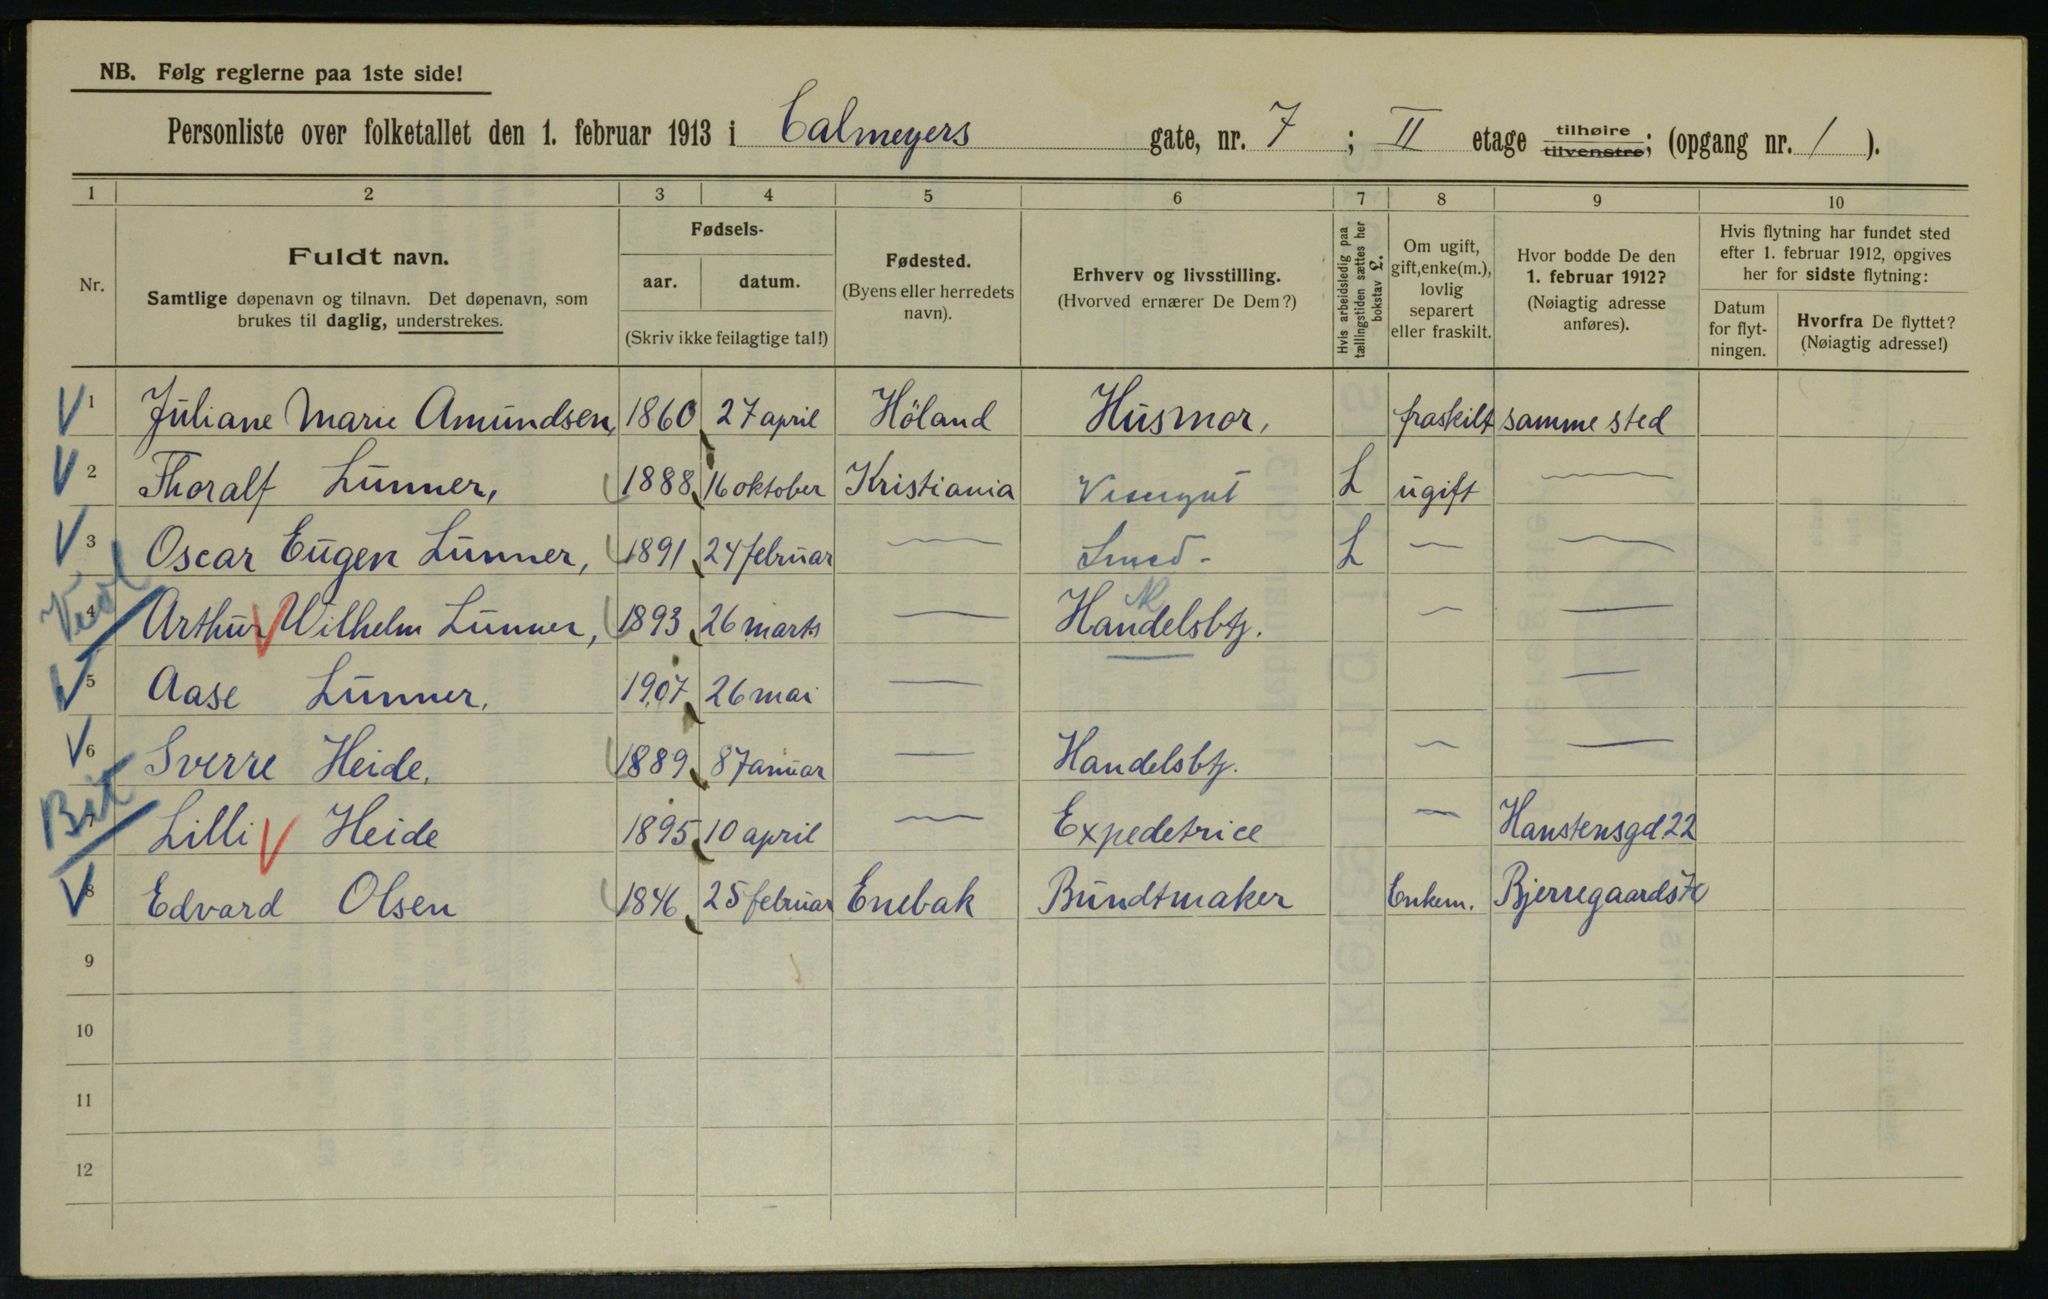 NB. Følg reglerne paa 1ste side!
Personliste over folketallet den 1. februar 1913 i Calmeyers gate, nr. 7 ; II etage tilhøire tilvenstre; (opgang nr. 1 ).
1 2 3 4 5 6 7 8 9 10
Nr.
Fuldt navn.
Samtlige døpenavn og tilnavn. Det døpenavn, som
brukes til daglig, understrekes.
Fødsels-
aar. datum.
(Skriv ikke feilagtige tal!)
Fødested.
(Byens eller herredets
navn).
Erhverv og livsstilling.
(Hvorved ernærer De Dem?)
Hvis arbeidsledig paa
tællingstiden sættes her
bokstav L.
Om ugift,
gift, enke(m.),
lovlig
separert
eller fraskilt.
Hvor bodde De den
1. februar 1912?
(Nøiagtig adresse
anføres).
Hvis flytning har fundet sted
efter 1. februar 1912, opgives
her for sidste flytning:
Datum
for flyt-
ningen.
Hvorfra De flyttet?
(Nøiagtig adresse!)
1 Juliane Marie Amundsen, 1860 27 april Höland Husmor, fraskilt samme sted
2 Thoralf Lunner, 1888 16 oktober Kristiania Visergut L ugift —
3 Oscar Eugen Lunner, 1891 24 februar — Smed - L — —
4 Arthur Wilhelm Lunner, 1893 26 marts — Handelsbtj. — —
5 Aase Lunner, 1907 26 mai — —
6 Sverre Heide, 1889 8 Januar — Handelsbtj. — —
7 Lilli Heide 1895 10 april — Expedetrice — Hanstensgd 22
8 Edvard Olsen 1846 25 februar Enebak Bundtmaker Enkem. Bjerregaards
9
10
11
12